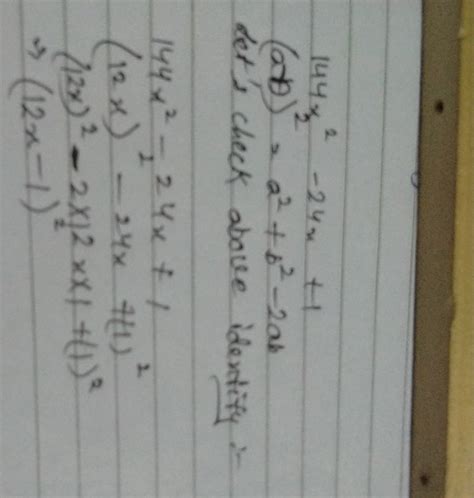 144x² - 24x + 1
(a-b)² = a² + b² - 2ab
let's check above identity :-
144x² - 24x + 1
(12x)² - 24x + (1)²
(12x)² - 2x12xx1 + (1)²
⇒ (12x - 1)²